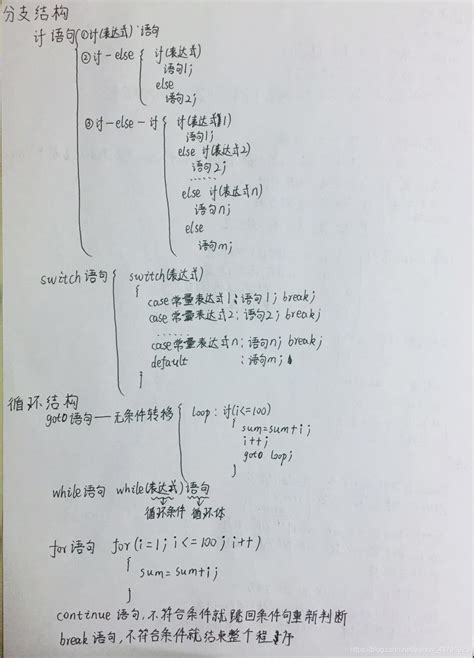 分支结构
if语句 ①if(表达式) 语句
②if-else if(表达式)
语句1;
else
语句2;
③if-else-if if(表达式1)
语句1;
else if(表达式2)
语句2;
......
else if(表达式n)
语句n;
else
语句m;
switch语句 switch(表达式)
{
case常量表达式1:语句1; break;
case常量表达式2:语句2; break;
......
case常量表达式n:语句n; break;
default :语句m;
}
循环结构
goto语句——无条件转移 loop: if(i<=100)
{
sum=sum+i;
i++;
goto loop;
}
while语句 while(表达式)语句
循环条件 循环体
for语句 for(i=1; i<=100; i++)
{
sum=sum+i;
}
continue语句,不符合条件就跳回条件句重新判断
break语句,不符合条件就结束整个程序